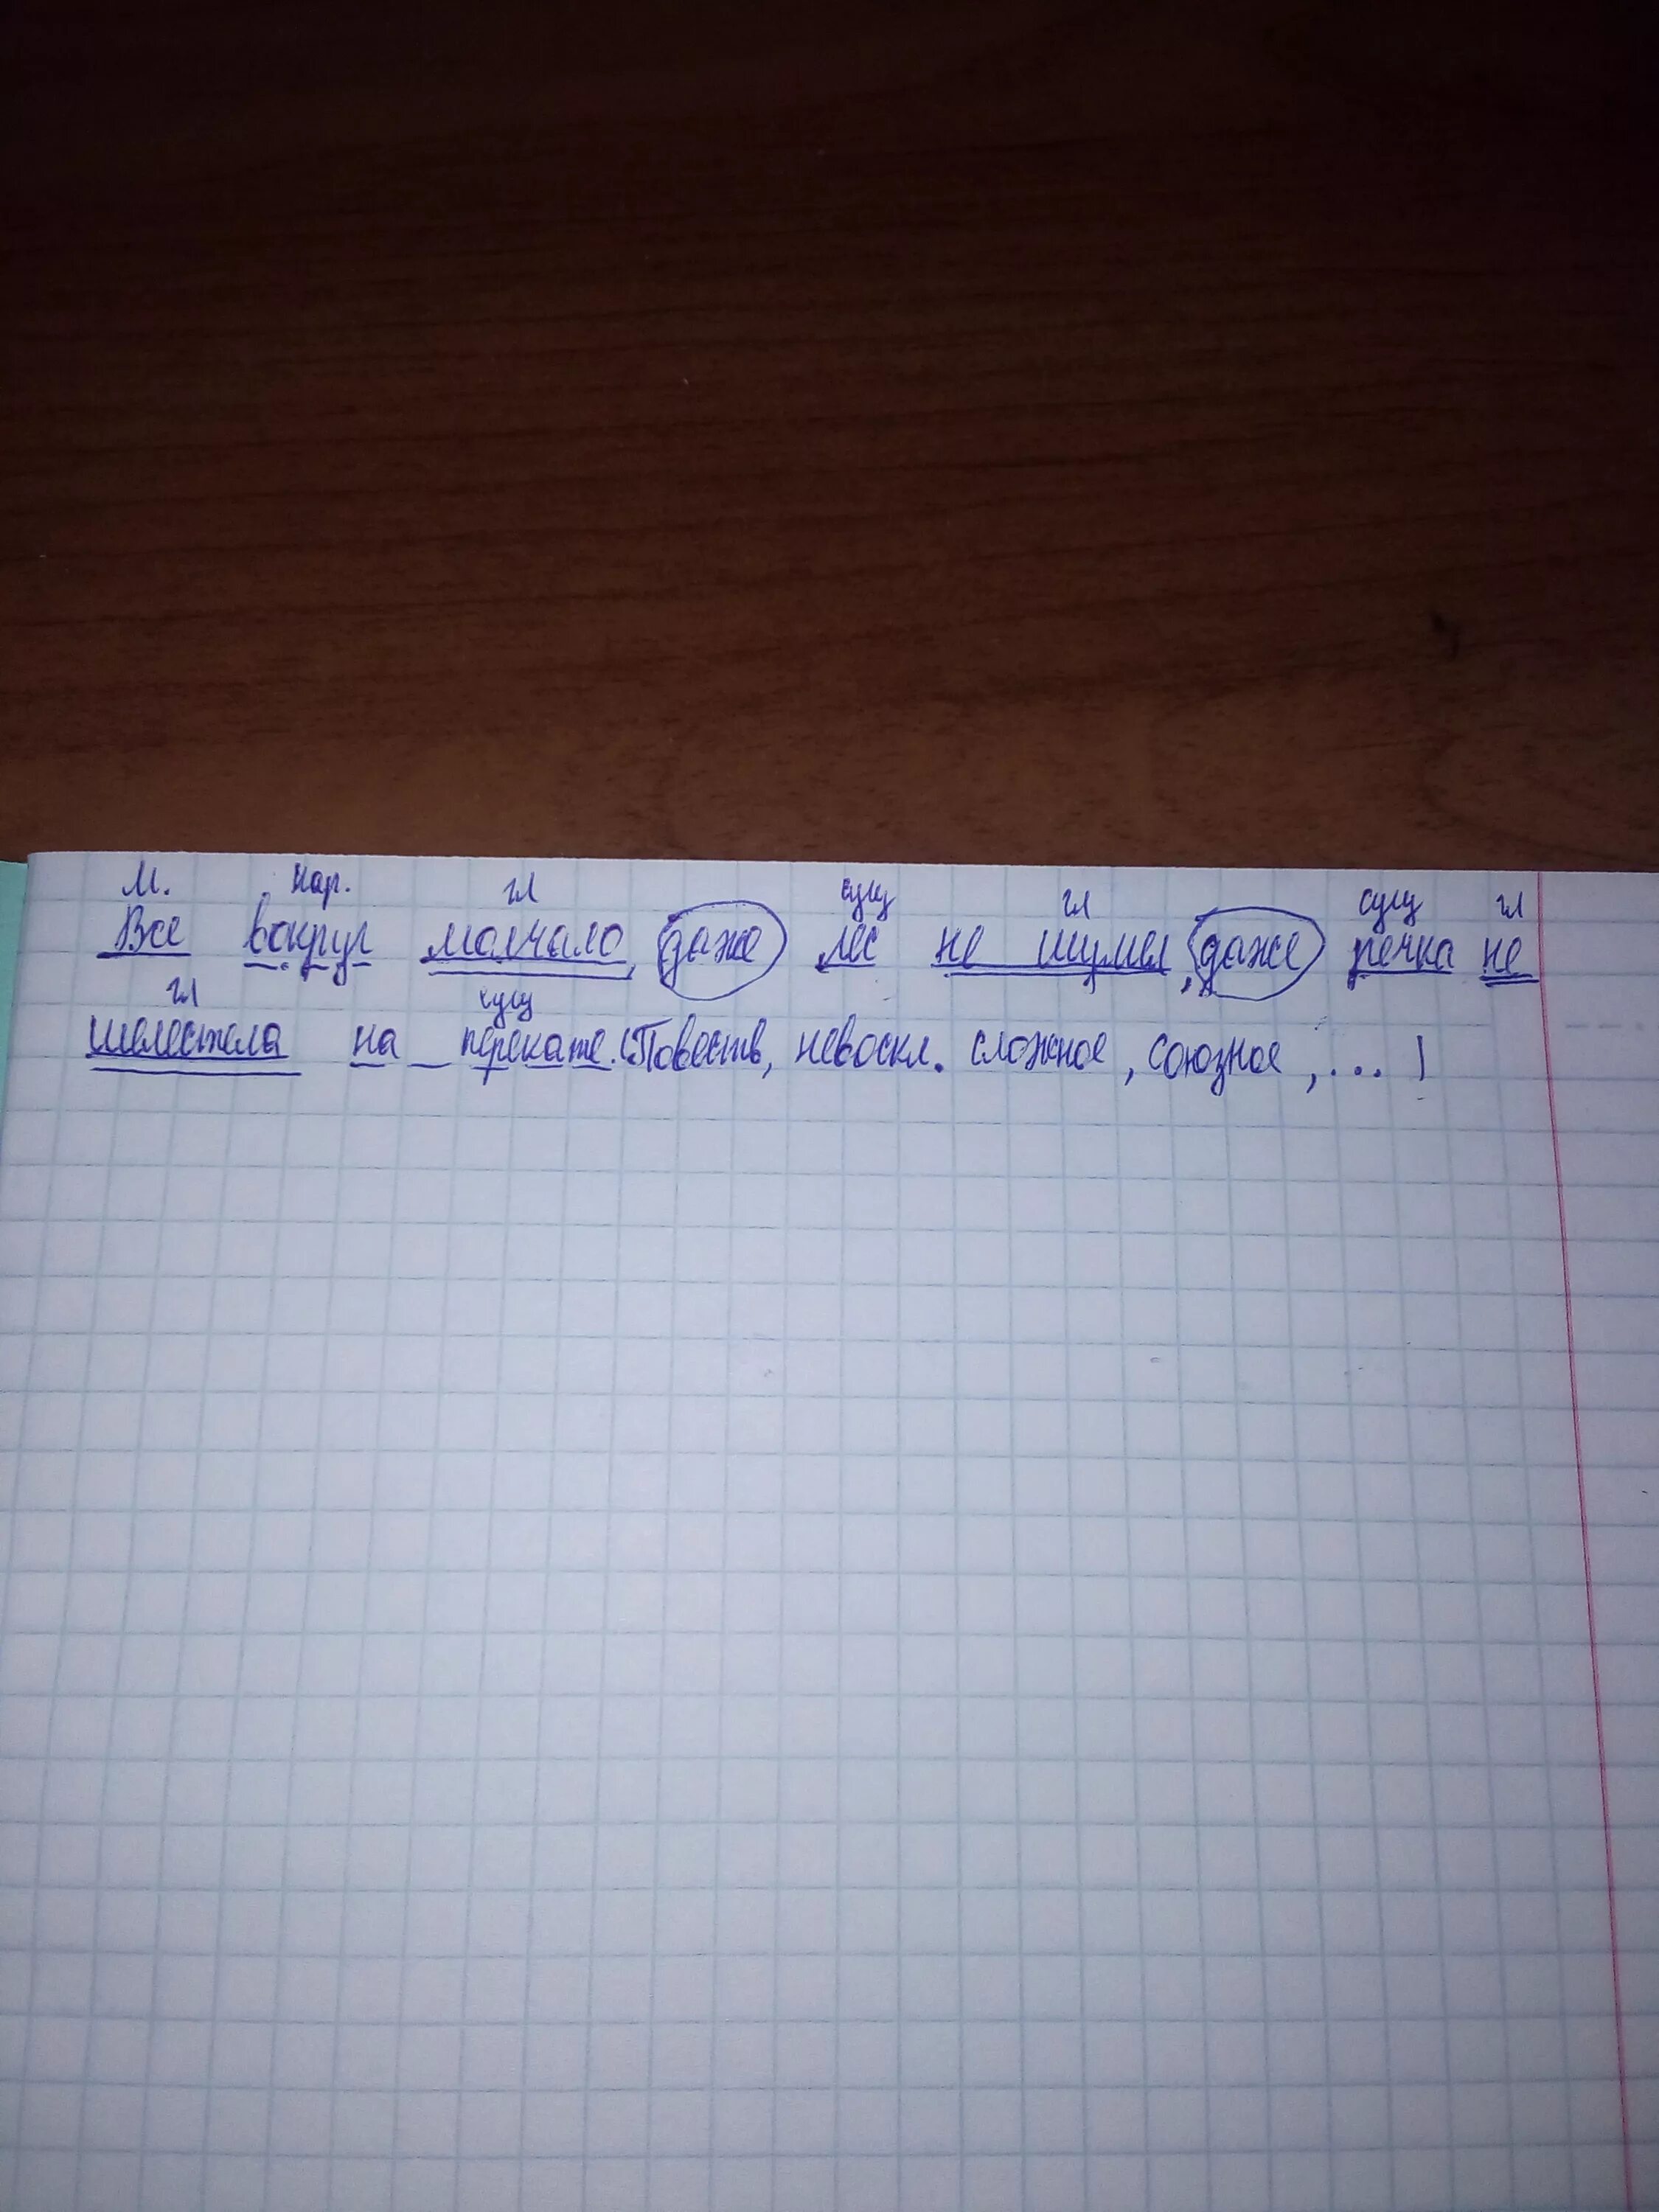 М. нар. гл сущ гл сущ гл
Все вокруг молчало, даже лес не шумел, даже речка не
гл сущ
шелестела на перекате. (Повеств, невоскл. сложное, союзное, ... )